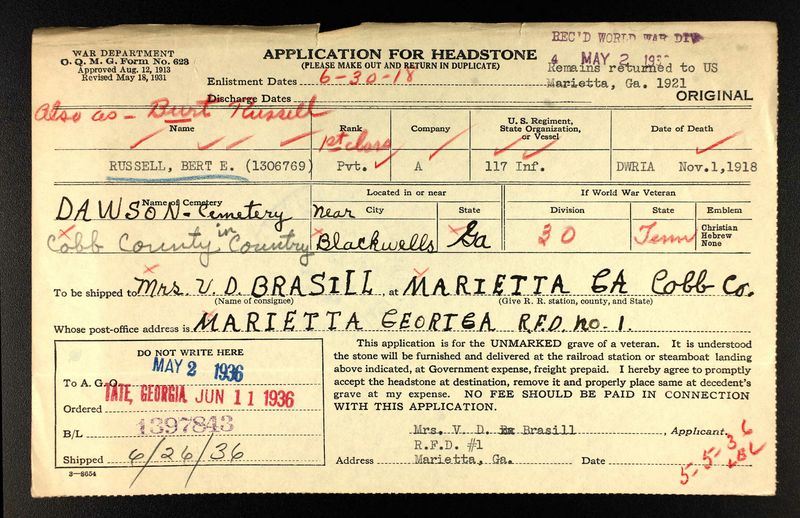 WAR DEPARTMENT
O. Q. M. G. Form No. 623
Approved Aug. 12, 1913
Revised May 18, 1931
APPLICATION FOR HEADSTONE
(PLEASE MAKE OUT AND RETURN IN DUPLICATE)
REC'D WORLD WAR DIV
4 MAY 2 1936
Remains returned to US
Marietta, Ga. 1921
Enlistment Dates 6-30-18
Discharge Dates
ORIGINAL
Also as - Burt Russell
Name
Rank
Company
U. S. Regiment, State Organization, or Vessel
Date of Death
1st class
RUSSELL, BERT E. (1306769)
Pvt.
A
117 Inf.
DWRIA Nov.1,1918
Name of Cemetery
Located in or near
City
State
If World War Veteran
Division
State
Emblem
DAWSON - Cemetery
near
Cobb County in Country
Blackwells
Ga
30
Tenn
Christian
Hebrew
None
To be shipped to Mrs. V. D. BRASILL, at MARIETTA GA Cobb Co.
(Name of consignee)
(Give R. R. station, county, and State)
Whose post-office address is MARIETTA GEORIGA R.F.D. no. 1.
DO NOT WRITE HERE
MAY 2 1936
To A. G. O.
TATE, GEORGIA JUN 11 1936
Ordered
B/L 1397843
Shipped 6/26/36
3-8654
This application is for the UNMARKED grave of a veteran. It is understood
the stone will be furnished and delivered at the railroad station or steamboat landing
above indicated, at Government expense, freight prepaid. I hereby agree to promptly
accept the headstone at destination, remove it and properly place same at decedent's
grave at my expense. NO FEE SHOULD BE PAID IN CONNECTION
WITH THIS APPLICATION.
Mrs. V. D. Brasill, Applicant.
R.F.D. #1
Address Marietta, Ga. Date
5-5-36